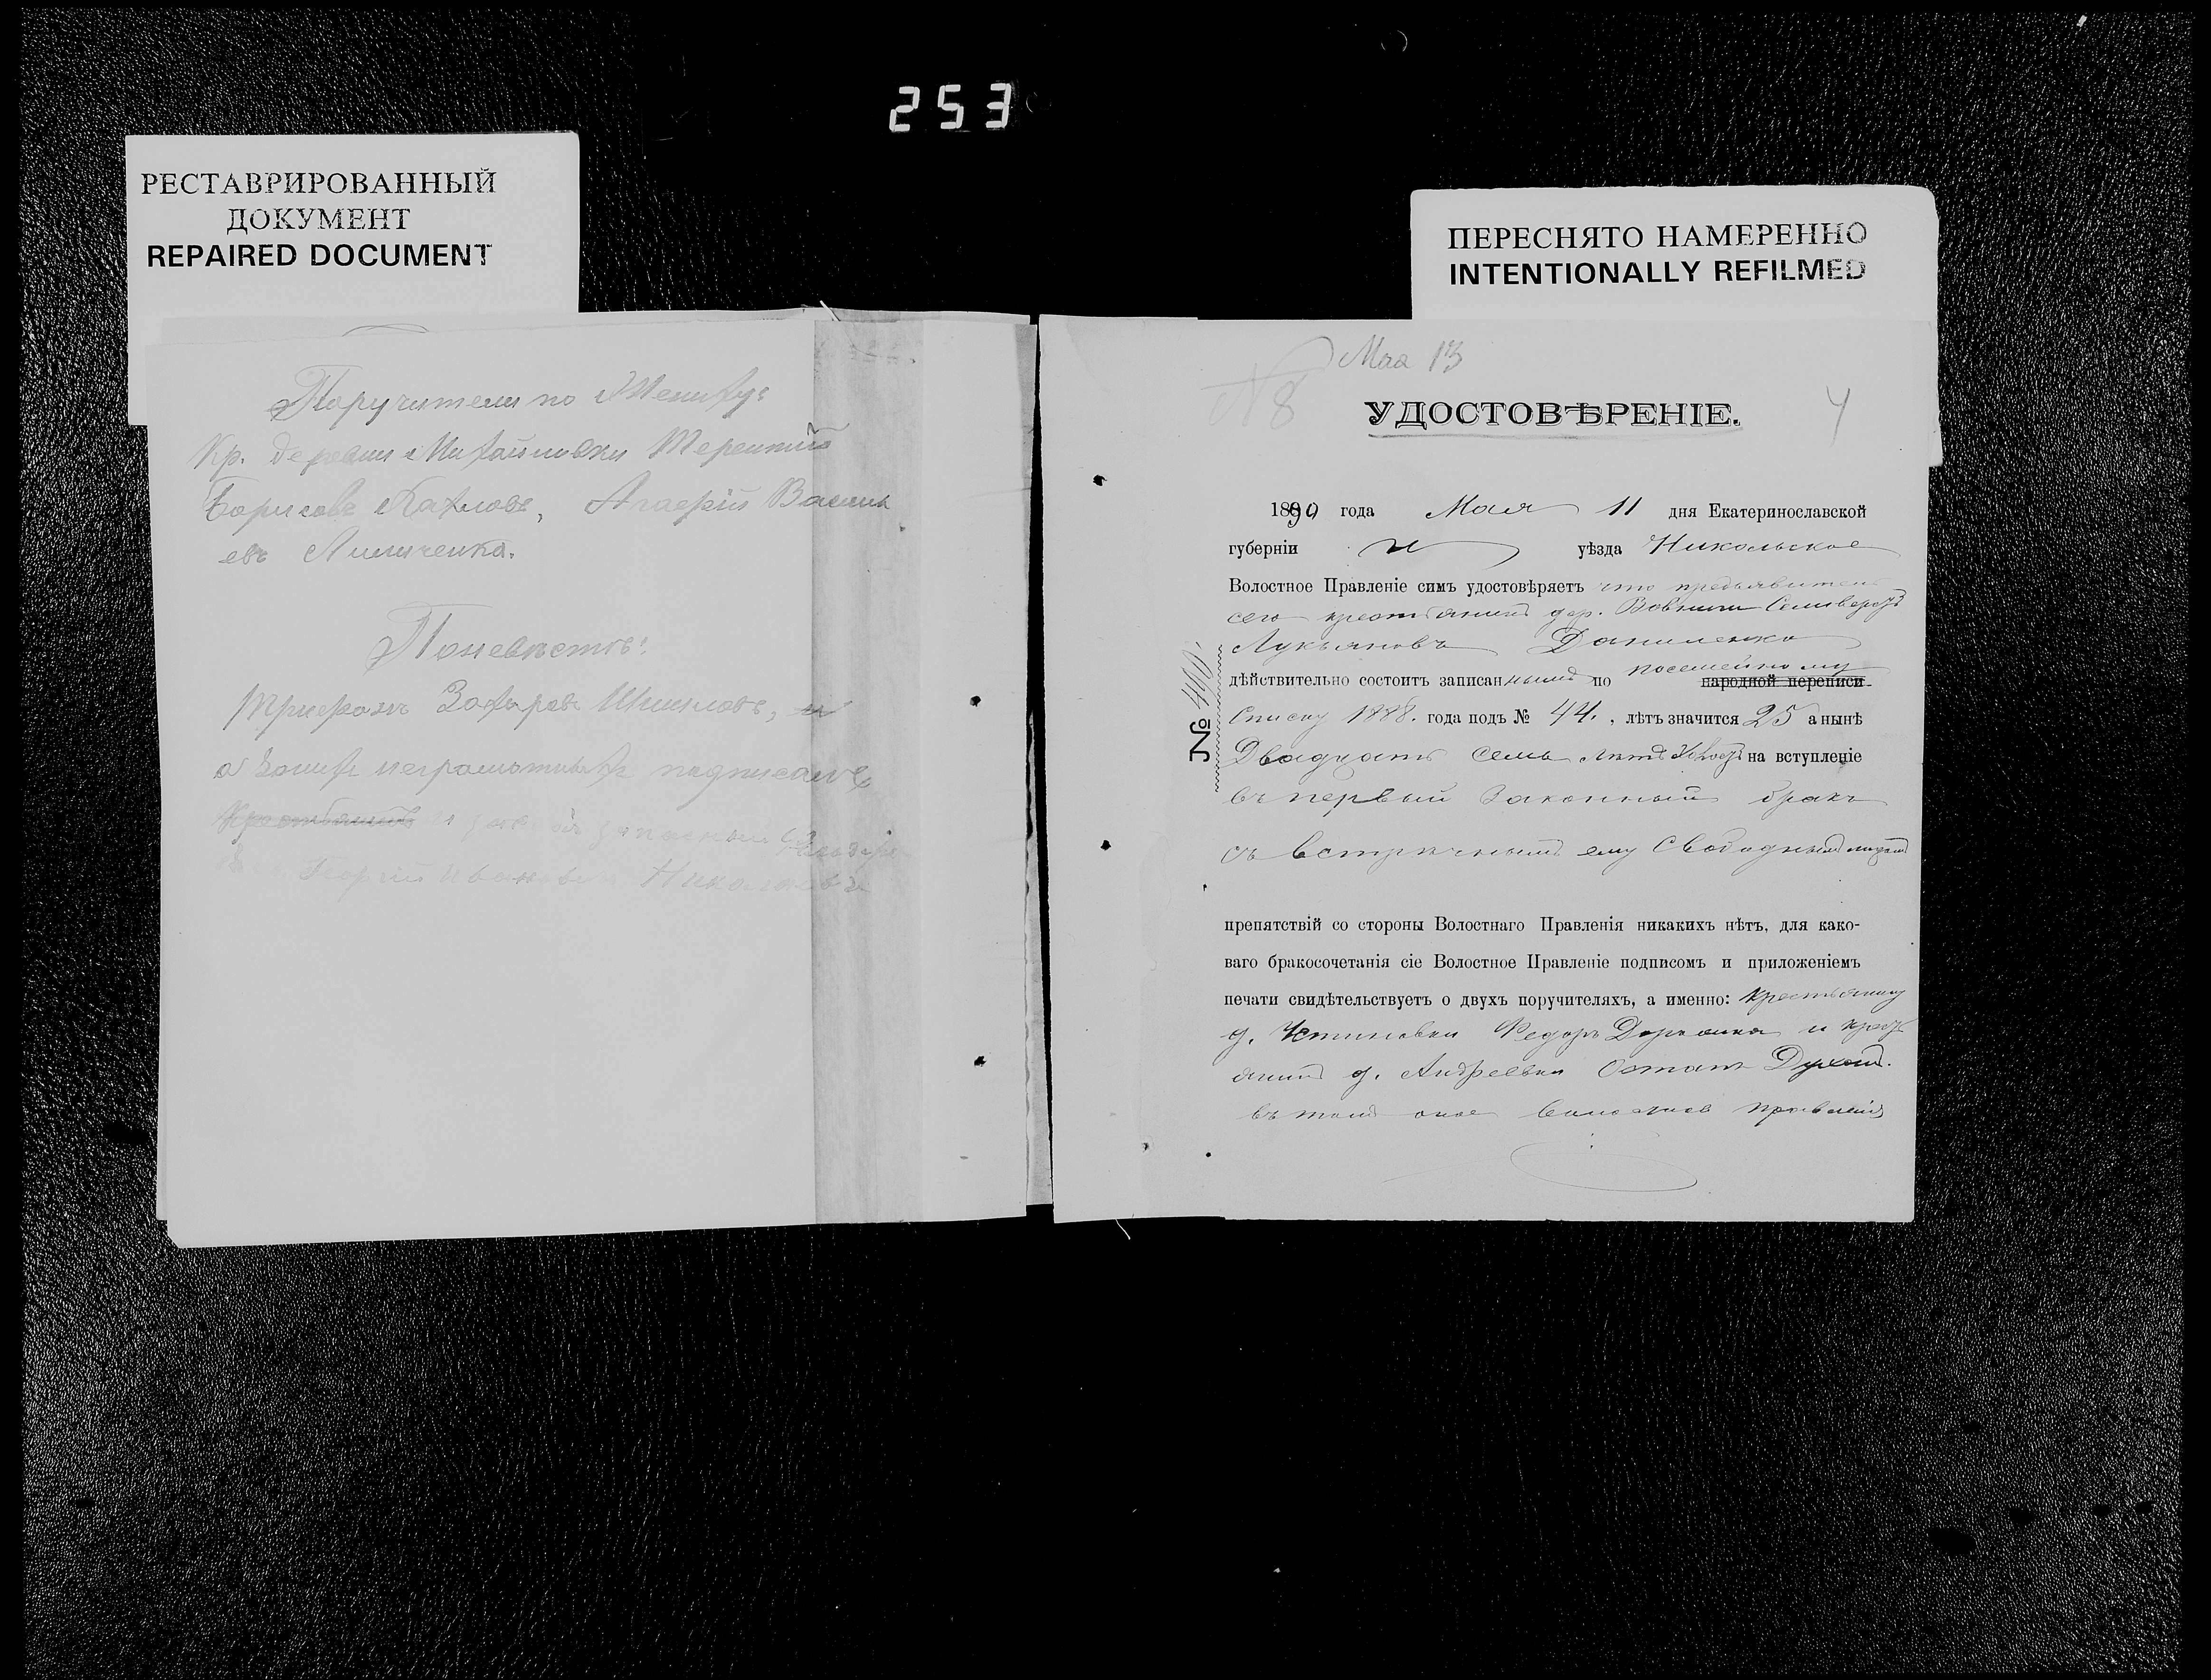 253
РЕСТАВРИРОВАННЫЙ
ДОКУМЕНТ
REPAIRED DOCUMENT
ПЕРЕСНЯТО НАМЕРЕННО
INTENTIONALLY REFILMED
Поручители по Жениху:
Кр. деревни Михайловки Терентій
Борисовъ Василь
евъ
По невѣстѣ:
Трифонъ Захаровъ Шишловъ, и
а за нихъ неграмотныхъ
Георгій Ивановъ Николаевъ
Мая 13
N 8
4
УДОСТОВѢРЕНІЕ.
1890 года Мая 11 дня Екатеринославской
губерніи и уѣзда Никольское
Волостное Правленіе симъ удостовѣряетъ что предъявитель
сего крестьянинъ дер.
Лукьяновъ Даниленко
дѣйствительно состоитъ записаннымъ по посемейному народной переписи
Списку 1888. года подъ № 44. , лѣтъ значится 25 а нынѣ
Двадцать семь лѣтъ на вступленіе
въ первый законный бракъ
съ встрѣченнымъ ему свободнымъ лицомъ
препятствій со стороны Волостнаго Правленія никакихъ нѣтъ, для како-
ваго бракосочетанія сіе Волостное Правленіе подписомъ и приложеніемъ
печати свидѣтельствуетъ о двухъ поручителяхъ, а именно:
д. Устиновки Федоръ и
д. Андреевки Остапъ
въ томъ волостное правленіе
№ 490